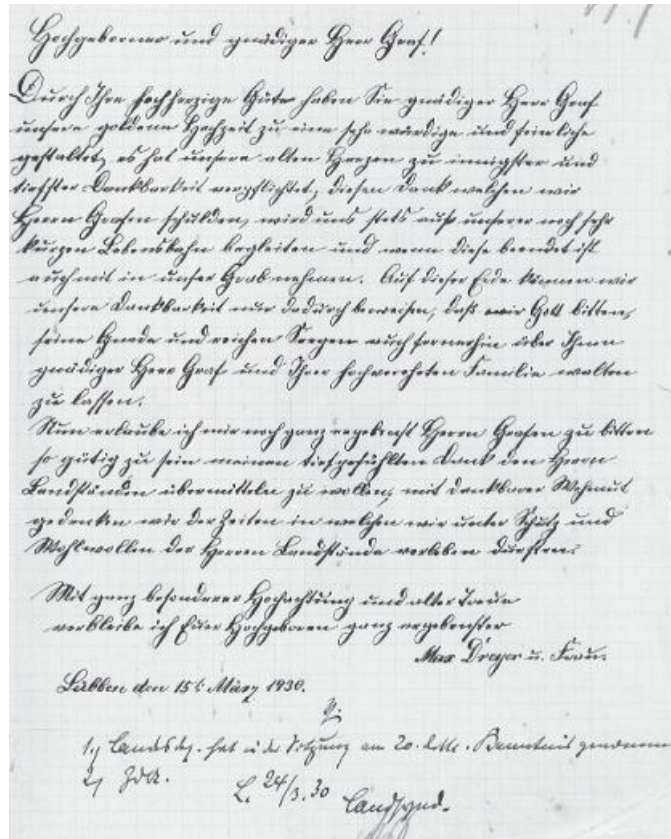 Hochgeborner und gnädiger Herr Graf!
Durch Ihre hochherzige Güte haben Sie gnädiger Herr Graf
unsere goldene Hochzeit zu eine sehr würdige und feierliche
gestaltet, es hat unsere alten Herzen zu innigster und
tiefster Dankbarkeit verpflichtet, diesen Dank welchen wir
Herrn Grafen schulden, wird uns stets auf unserer noch sehr
kurzen Lebensbahn begleiten und wenn diese beendet ist
auch mit in unser Grab nehmen. Auf dieser Erde können wir
unsere Dankbarkeit nur dadurch beweisen, daß wir Gott bitten,
seine Gnade und reichen Seegen auch fernerhin über Ihnen
gnädiger Herr Graf und Ihrer hochverehrten Familie walten
zu lassen.
Nun erlaube ich mir noch ganz ergebenst Herrn Grafen zu bitten
so gütig zu sein meinen tiefgefühlten Dank den Herrn
Landständen übermitteln zu wollen, mit dankbarer Wehmut
gedenken wir der Zeiten in welchen wir unter Schutz und
Wohlwollen der Herren Landstände verleben durften.
Mit ganz besonderer Hochachtung und alter Treue
verbleibe ich Euer Hochgeboren ganz ergebenster
Max Dreyer u. Frau.
Lübben den 15t. März 1930.
1.) Landsdep. hat in der Sitzung am 20. Kenntnis genommen
2.) ZdA.
L. 24/3. 30
Landsynd.